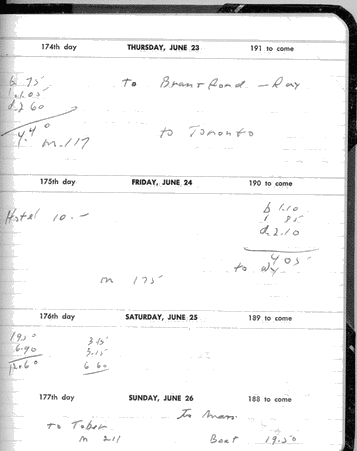 174th day THURSDAY, JUNE 23 191 to come
b 75 to Brantford - Ray
1.05
d 2.60
4.40 to Toronto
m. 117
175th day FRIDAY, JUNE 24 190 to come
Hotel 10.- b 1.10
l 85
d 2.10
4 05
to
m 175
176th day SATURDAY, JUNE 25 189 to come
3.15
6.90 3.15
6 60
177th day SUNDAY, JUNE 26 188 to come
to
to Tober
m 211 Boat 19.50